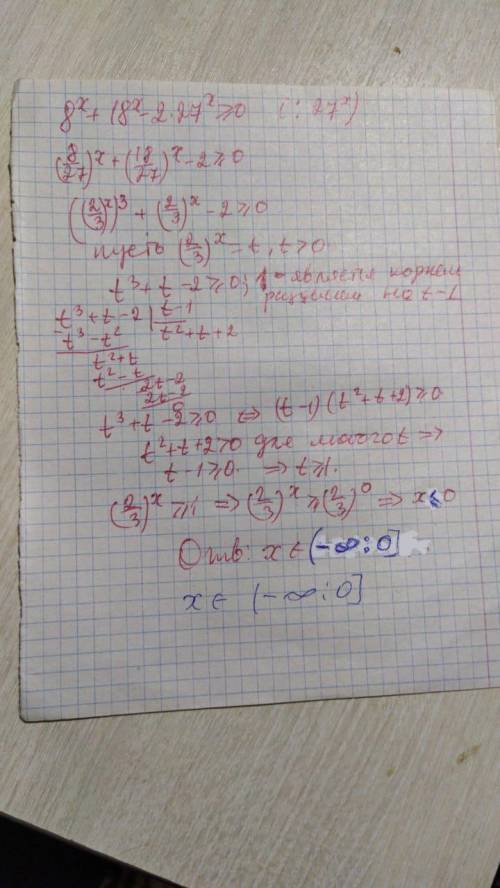 8^x + 18^x - 2·27^x ≥ 0 (: 27^x)
(8/27)^x + (18/27)^x - 2 ≥ 0
((2/3)^x)^3 + (2/3)^x - 2 ≥ 0
пусть (2/3)^x = t, t > 0
t^3 + t - 2 ≥ 0; 1 - является корнем
на t-1
t^3 + t - 2 | t-1
t^3 - t^2 t^2 + t + 2
t^2 + t
t^2 - t
2t - 2
2t - 2
0
t^3 + t - 2 ≥ 0 ⇔ (t-1)(t^2+t+2) ≥ 0
t^2 + t + 2 > 0 для любого t ⇒
t - 1 ≥ 0 ⇒ t ≥ 1.
(2/3)^x ≥ 1 ⇒ (2/3)^x ≥ (2/3)^0 ⇒ x ≤ 0
Отв: x ∈ (-∞; 0]
x ∈ (-∞; 0]